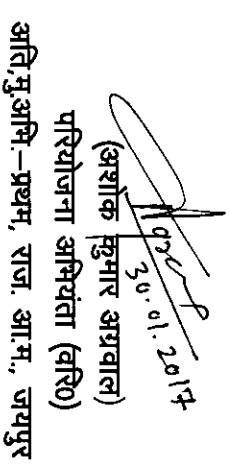 30.01.2017
(अशोक कुमार अग्रवाल)
परियोजना अभियंता (वरि0)
अति.मु.अभि.–प्रथम, राज. आ.म., जयपुर